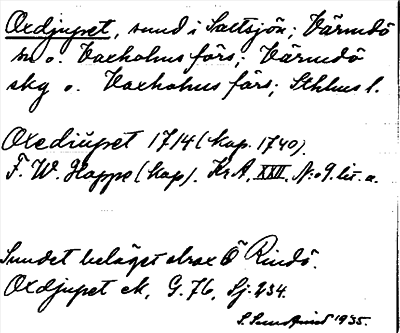 Oxdjupet, sund i Saltsjön; Värmdö
sn o. Vaxholms förs; Värmdö
skg o. Vaxholms förs; Sthlms l.
Oxediüpet 1714 (kop. 1740).
F. W. Hoppe (kop). Kr.A, XXII, N:o 9. lit. a.
Sundet beläget strax Ö Rindö.
Oxdjupet ek, G. 76, Sj: 234.
S. 1935.